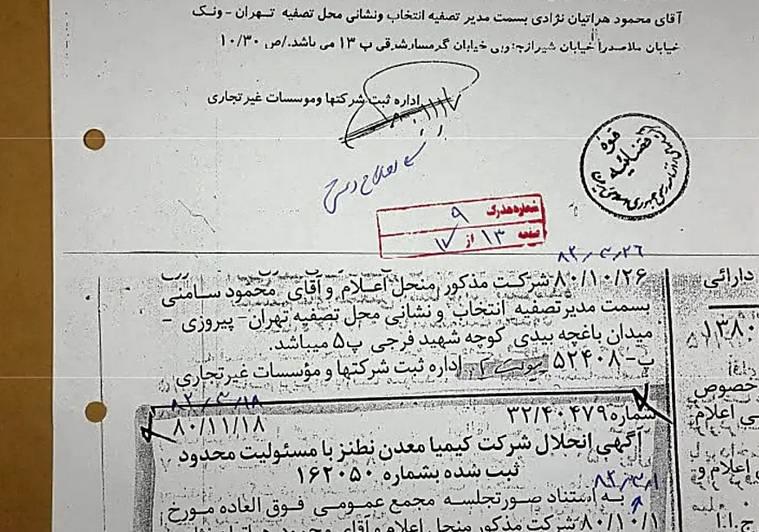 آقای محمود هراتیان نژادی بسمت مدیر تصفیه انتخاب ونشانی محل تصفیه تهران - ونک
خیابان ملاصدرا خیابان شیرازجنوبی خیابان گرمسارشرقی پ ۱۳ می باشد./ص ۱۰/۳۰
اداره ثبت شرکتها وموسسات غیرتجاری
قوه قضائیه
شماره مدرک ۹
صفحه ۱۳ از ۱۷
۸۲/۳/۲۶
۸۰/۱۰/۲۶ شرکت مذکور منحل اعلام و آقای محمود سامنی
بسمت مدیر تصفیه انتخاب و نشانی محل تصفیه تهران - پیروزی -
میدان باغچه بیدی کوچه شهید فرجی پ۵ میباشد.
پ-۵۲۴۰۸ اداره ثبت شرکتها و مؤسسات غیرتجاری
۸۲/۳/۱۸
شماره ۳۲/۴۰۴۷۹
۸۰/۱۱/۱۸
آگهی انحلال شرکت کیمیا معدن نطنز با مسئولیت محدود
ثبت شده بشماره ۱۶۲۰۵۰
۸۲/۳/۱
به استناد صورتجلسه مجمع عمومی فوق العاده مورخ
۸۰/۱۰/۱ شرکت مذکور منحل اعلام و آقای محمود هراتیان
دارائی
۱۳۸۰
خصوص
ی اعلام
اعلام و